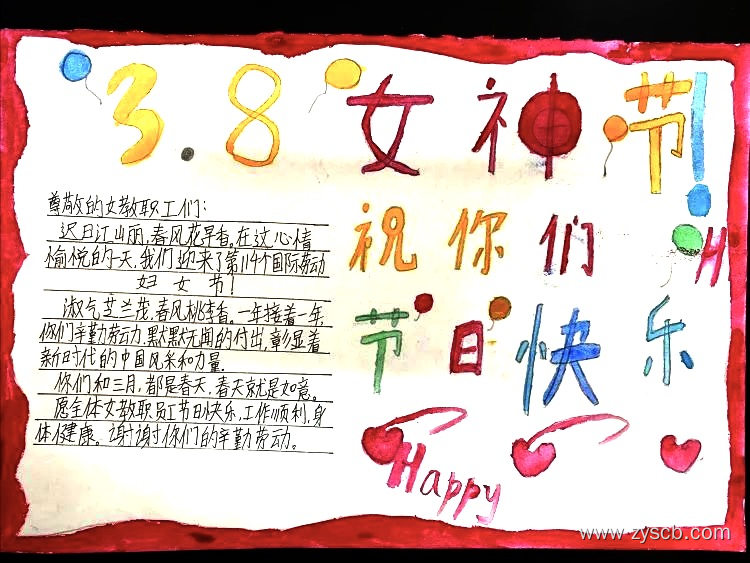 3.8 女神节!
尊敬的女教职工们:
迟日江山丽,春风花早香。在这心情
愉悦的一天,我们迎来了第114个国际劳动
妇女节!
淑气芝兰茂,春风桃李香。一年接着一年,
你们辛勤劳动力,默默无闻的付出,彰显着
新时代的中国风采和力量.
你们和三月,都是春天,春天就是如意。
愿全体女教职员工节日快乐,工作顺利,身
体健康。谢谢你们的辛勤劳动。
祝你们
H
节日快乐
Happy
www.zyscb.com